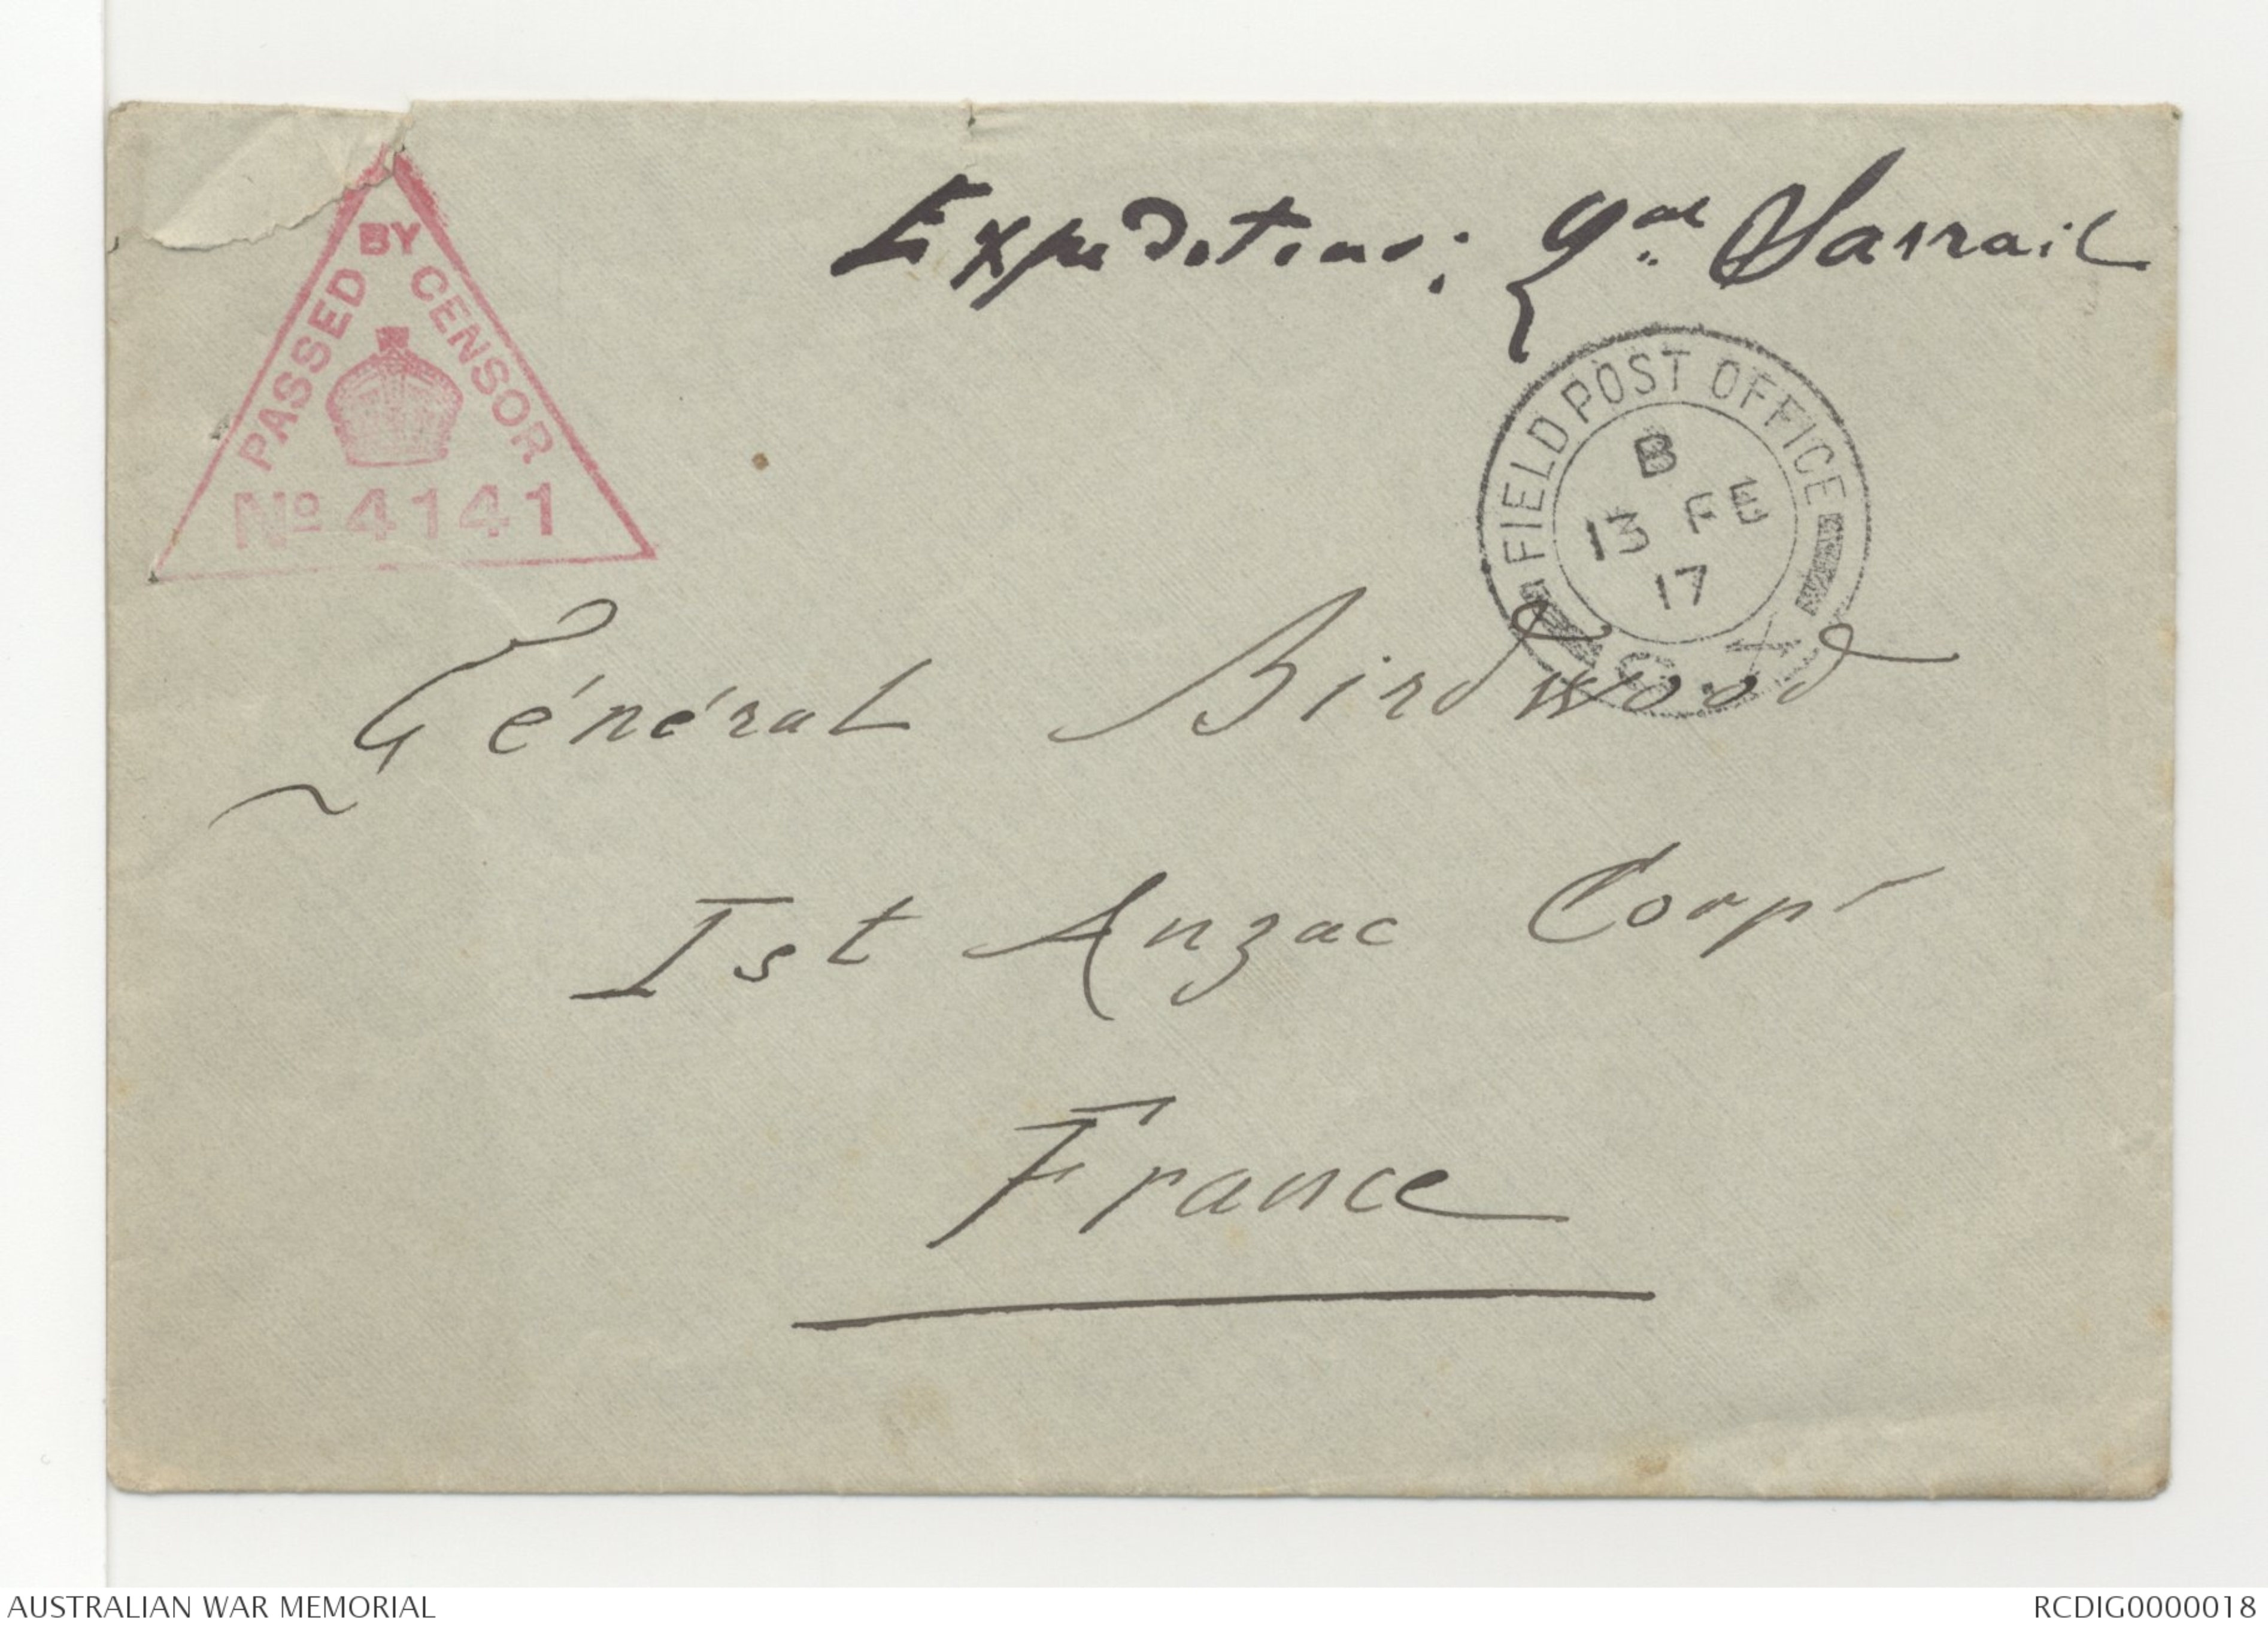 Expediteur: Gal Sarrail
PASSED BY CENSOR
No 4141
FIELD POST OFFICE
B
13 FE
17
Général Birdwood
Ist Anzac Corps
France
AUSTRALIAN WAR MEMORIAL
RCDIG0000018